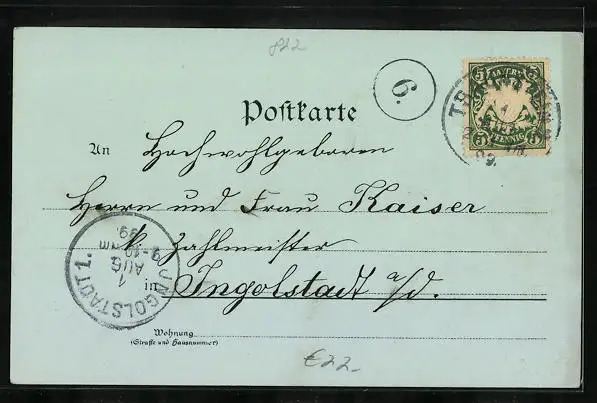 822
6.
BAYERN
5 5
5 PFENNIG 5
Postkarte
An Hochwohlgeboren
Herrn und Frau Kaiser
k. Zahlmeister
in Ingolstadt a/d.
INGOLSTADT 1.
1
AUG
99.
Wohnung
(Straße und Hausnummer)
€22.-